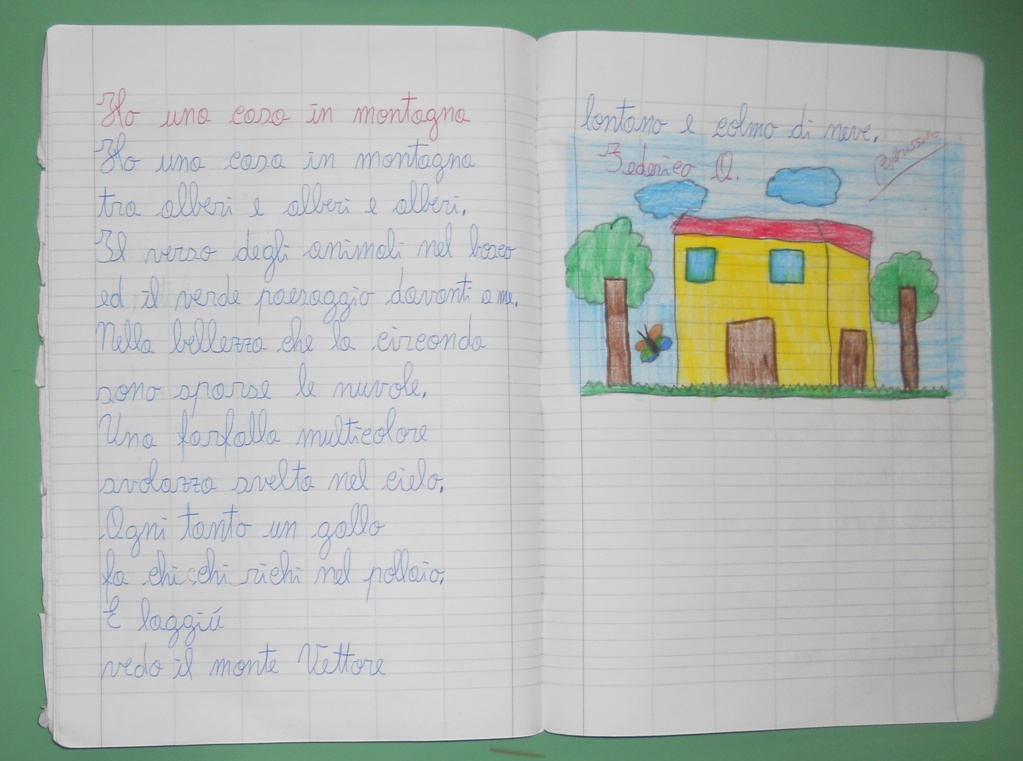 Ho una casa in montagna
Ho una casa in montagna
tra alberi e alberi e alberi.
Il verso degli animali nel bosco
ed il verde paesaggio davanti a me.
Nella bellezza che la circonda
sono sparse le nuvole.
Una farfalla multicolore
svolazza svelta nel cielo.
Ogni tanto un gallo
fa chicchirichi nel pollaio.
E laggiú
vedo il monte Vettore
lontano e colmo di neve.
Federico Q.